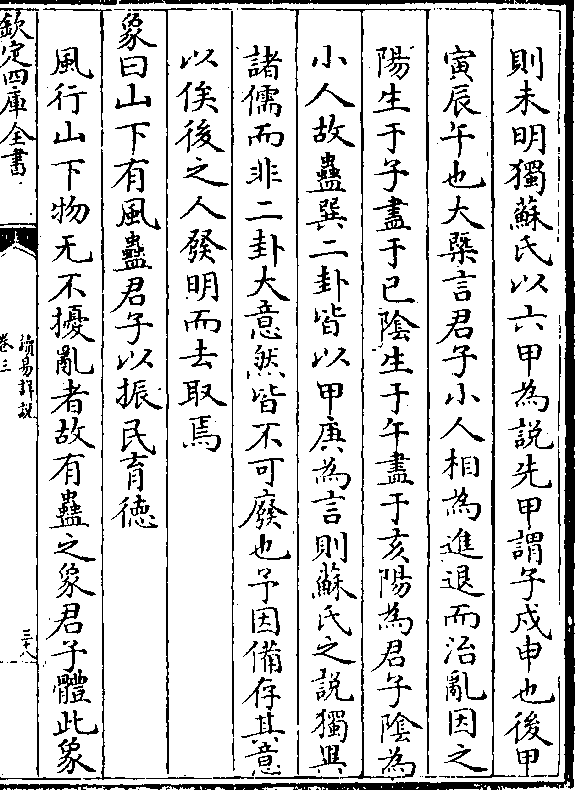 則未明獨蘇氏以六甲為說先甲謂子戌申也後甲
寅辰午也大槩言君子小人相為進退而治亂因之
陽生于子盡于巳陰生于午盡于亥陽為君子陰為
小人故蠱巽二卦皆以甲庚為言則蘇氏之說獨異
諸儒而非二卦大意然皆不可廢也予因備存其意
以俟後之人發明而去取焉
象曰山下有風蠱君子以振民育徳
風行山下物无不擾亂者故有蠱之象君子體此象
欽定四庫全書
讀易詳說
卷三
三十八